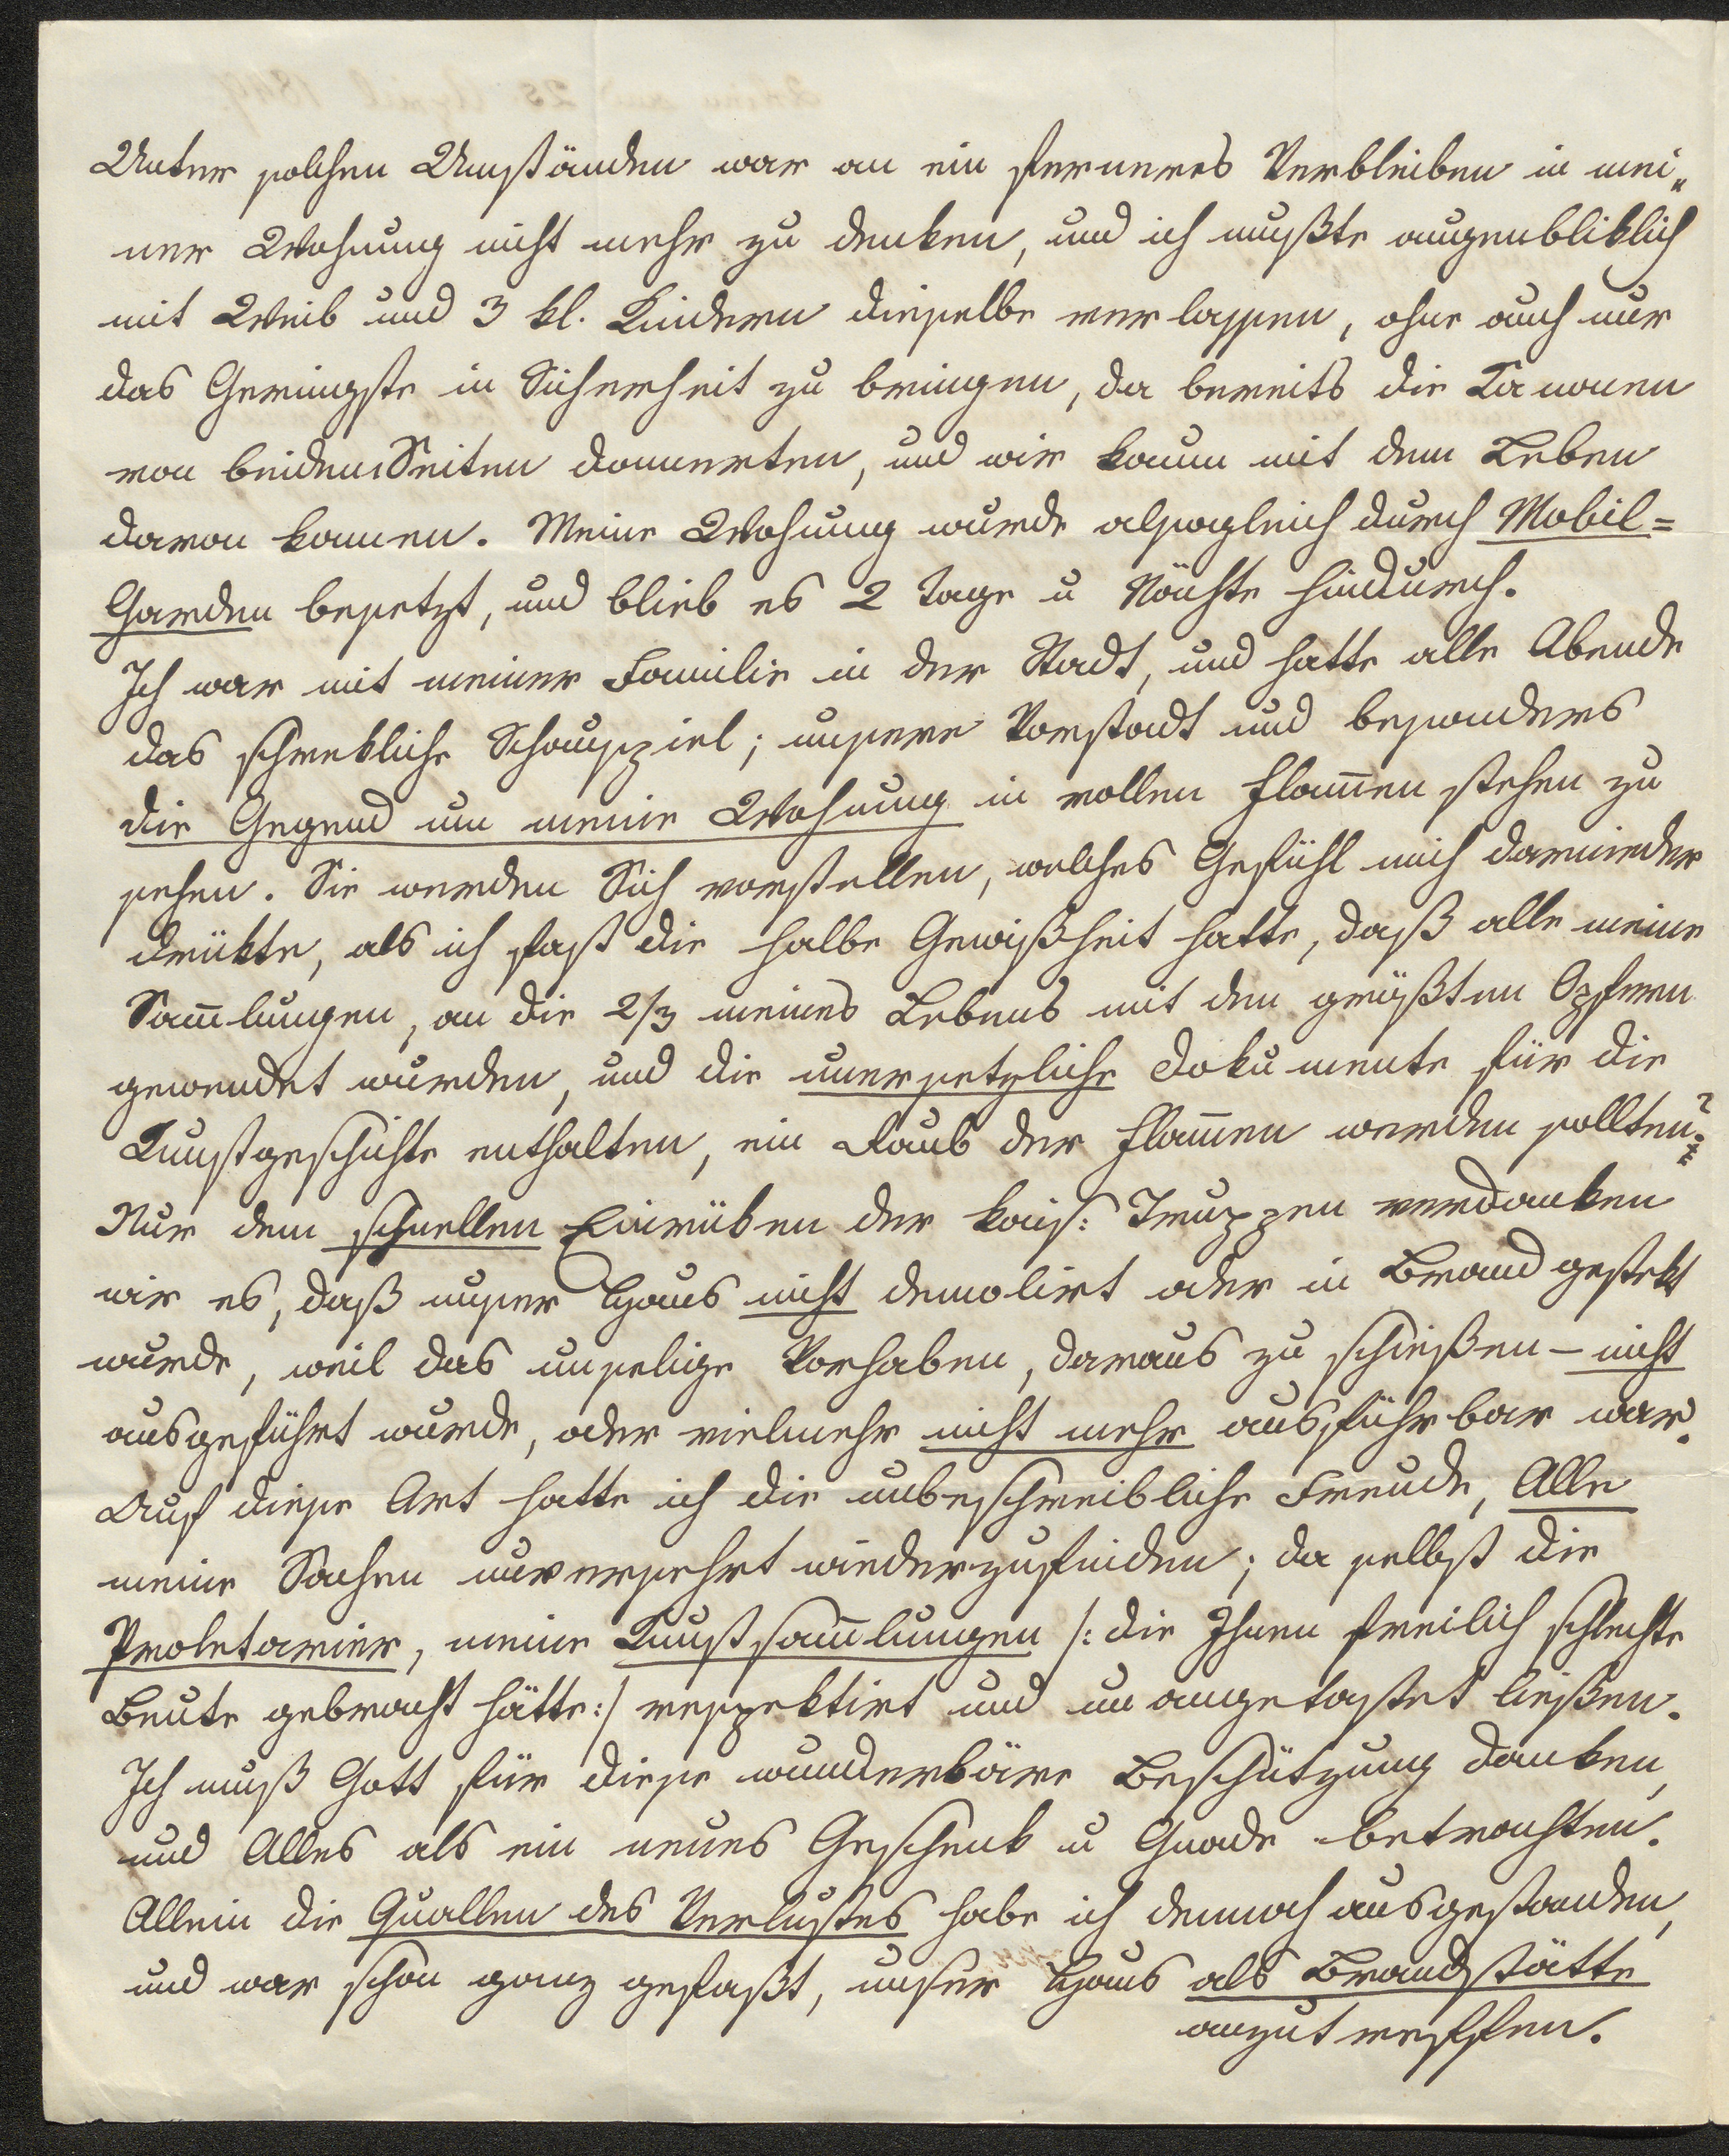 Unter solchen Umständen war an ein ferneres Verbleiben in mei„
ner Wohnung nicht mehr zu denken, und ich mußte augenbliklich
mit Weib und 3 kl. Kindern dieselbe verlassen, ohne auch nur
das Geringste in Sicherheit zu bringen, da bereits die Kanonen
von beiden Seiten donnerten, und wir kaum mit dem Leben
davon kamen. Meine Wohnung wurde alsogleich durch Mobil=
Garden besetzt, und blieb es 2 Tage u Nächte hindurch.
Ich war mit meiner Familie in der Stadt, und hatte alle Abende
das schrekliche Schauspiel; unsere Vorstadt und besonders
die Gegend um meine Wohnung in vollen Flam̅en stehen zu
sehen. Sie werden Sich vorstellen, welches Gefühl mich darnieder
drükte, als ich fast die halbe Gewißheit hatte, daß alle meine
Sam̅lungen, an die 2/3 meines Lebens mit den größten Opfern
gewendet wurden, und die unersetzliche Dokumente für die
Kunstgeschichte enthalten, ein Raub der Flam̅en werden sollten?
Nur dem schnellen Einrüken der kais: Truppen verdanken
wir es, daß unser Haus nicht demolirt oder in Brand gestekt
wurde, weil das unselige Vorhaben, daraus zu schießen – nicht
ausgeführt wurde, oder vielmehr nicht mehr ausführbar war.
Auf diese Art hatte ich die unbeschreibliche Freude, Alle
meine Sachen unversehrt wiederzufinden; da selbst die
Proletarier, meine Kunstsam̅lungen /: die Ihnen freilich schlechte
Beute gebracht hätte :/ respektirt und unangetastet ließen.
Ich muß Gott für diese wunderbäre Beschützung danken,
und Alles als ein neues Geschenk u Gnade betrachten.
Allein die Quallen des Verlustes habe ich dennoch ausgestanden,
und war schon ganz gefaßt, unser Haus als Brandstätte
anzutreffen.